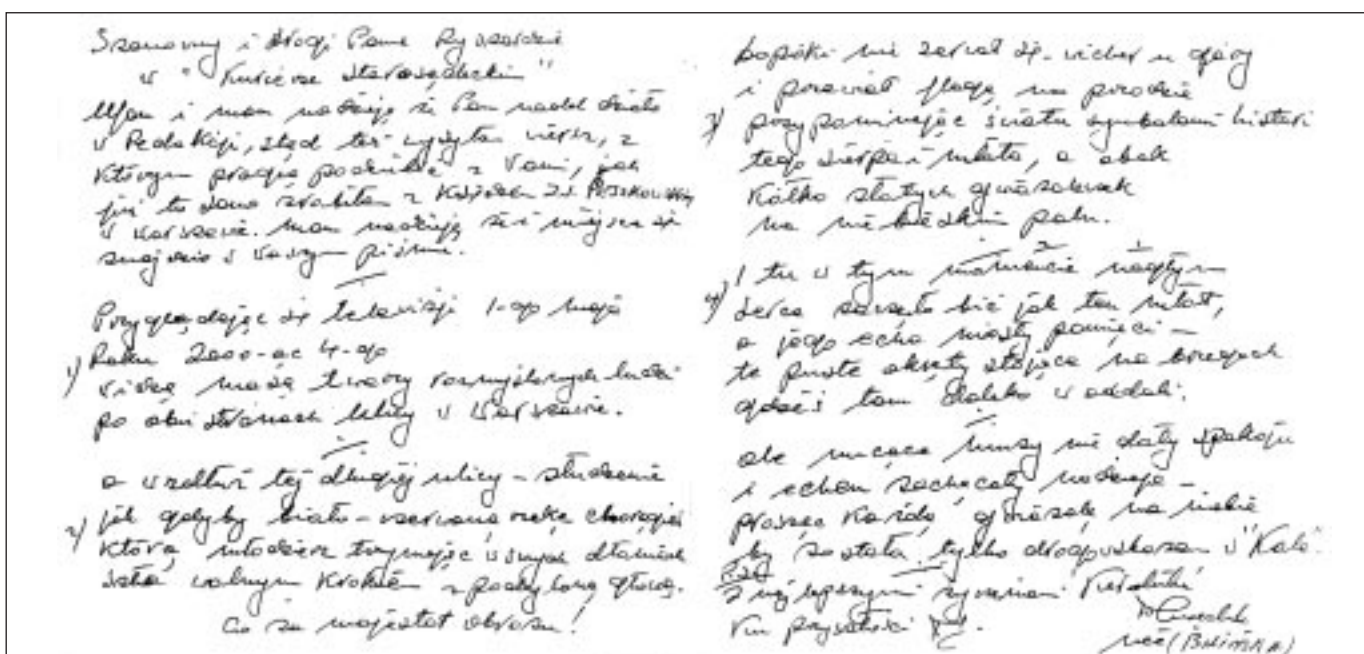 Szanowny i drogi Panie Ryszardzie
w "Kurierze Starosądeckim"
Ufam i mam nadzieję że Pan nadal działa
w Redakcji, stąd też wysyłam wiersz, z
którym pragnę podzielić z Wami, jak
już to dawno zrobiłam z Księdzem
w Warszawie. Mam nadzieję że i miejsce się
znajdzie w Waszym piśmie.
Przyglądając się telewizji 1-go maja
Roku 2000-ac 4-go
1) widzę twarzy rozmyślonych ludzi
po obu stronach ulicy w Warszawie.
a wzdłuż tej długiej ulicy - studenci
2) jak gdyby biało-czerwoną rzekę chorągwi
którą młodzież trzymając w swych dłoniach
szła wolnym krokiem z pochyloną głową.
Co za majestat obrazu!
dopóki nie zerwał się wicher u góry
i porwał flagę na przodzie
3) przypominając światu symbolami histori
tego sierpa i młota, a obok
kółko złotych gwiazdeczek
na niebieskim polu.
2 1
I tu w tym momencie nagłym
4) serce zaczęło bić jak ten młot,
a jego echa pamięci -
te puste okręty stojące na brzegach
gdzieś tam daleko w oddali.
ale nucące muzy nie dały spokoju
i echem zachęcały nadzieję -
prosząc każdą gwiazdę na niebie
by została tylko drogowskazem w "Kole".
Z najlepszymi życzeniami
w przyszłości
(BULIŃSKA)